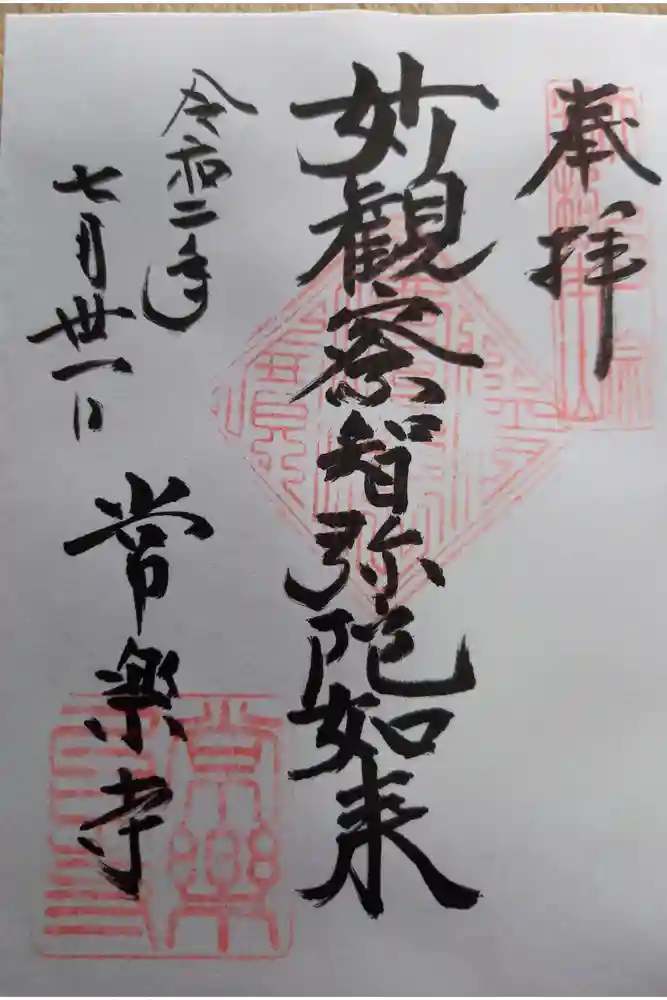 奉拝
妙観察智弥陀如来
令和二年
七月丗一日
常楽寺